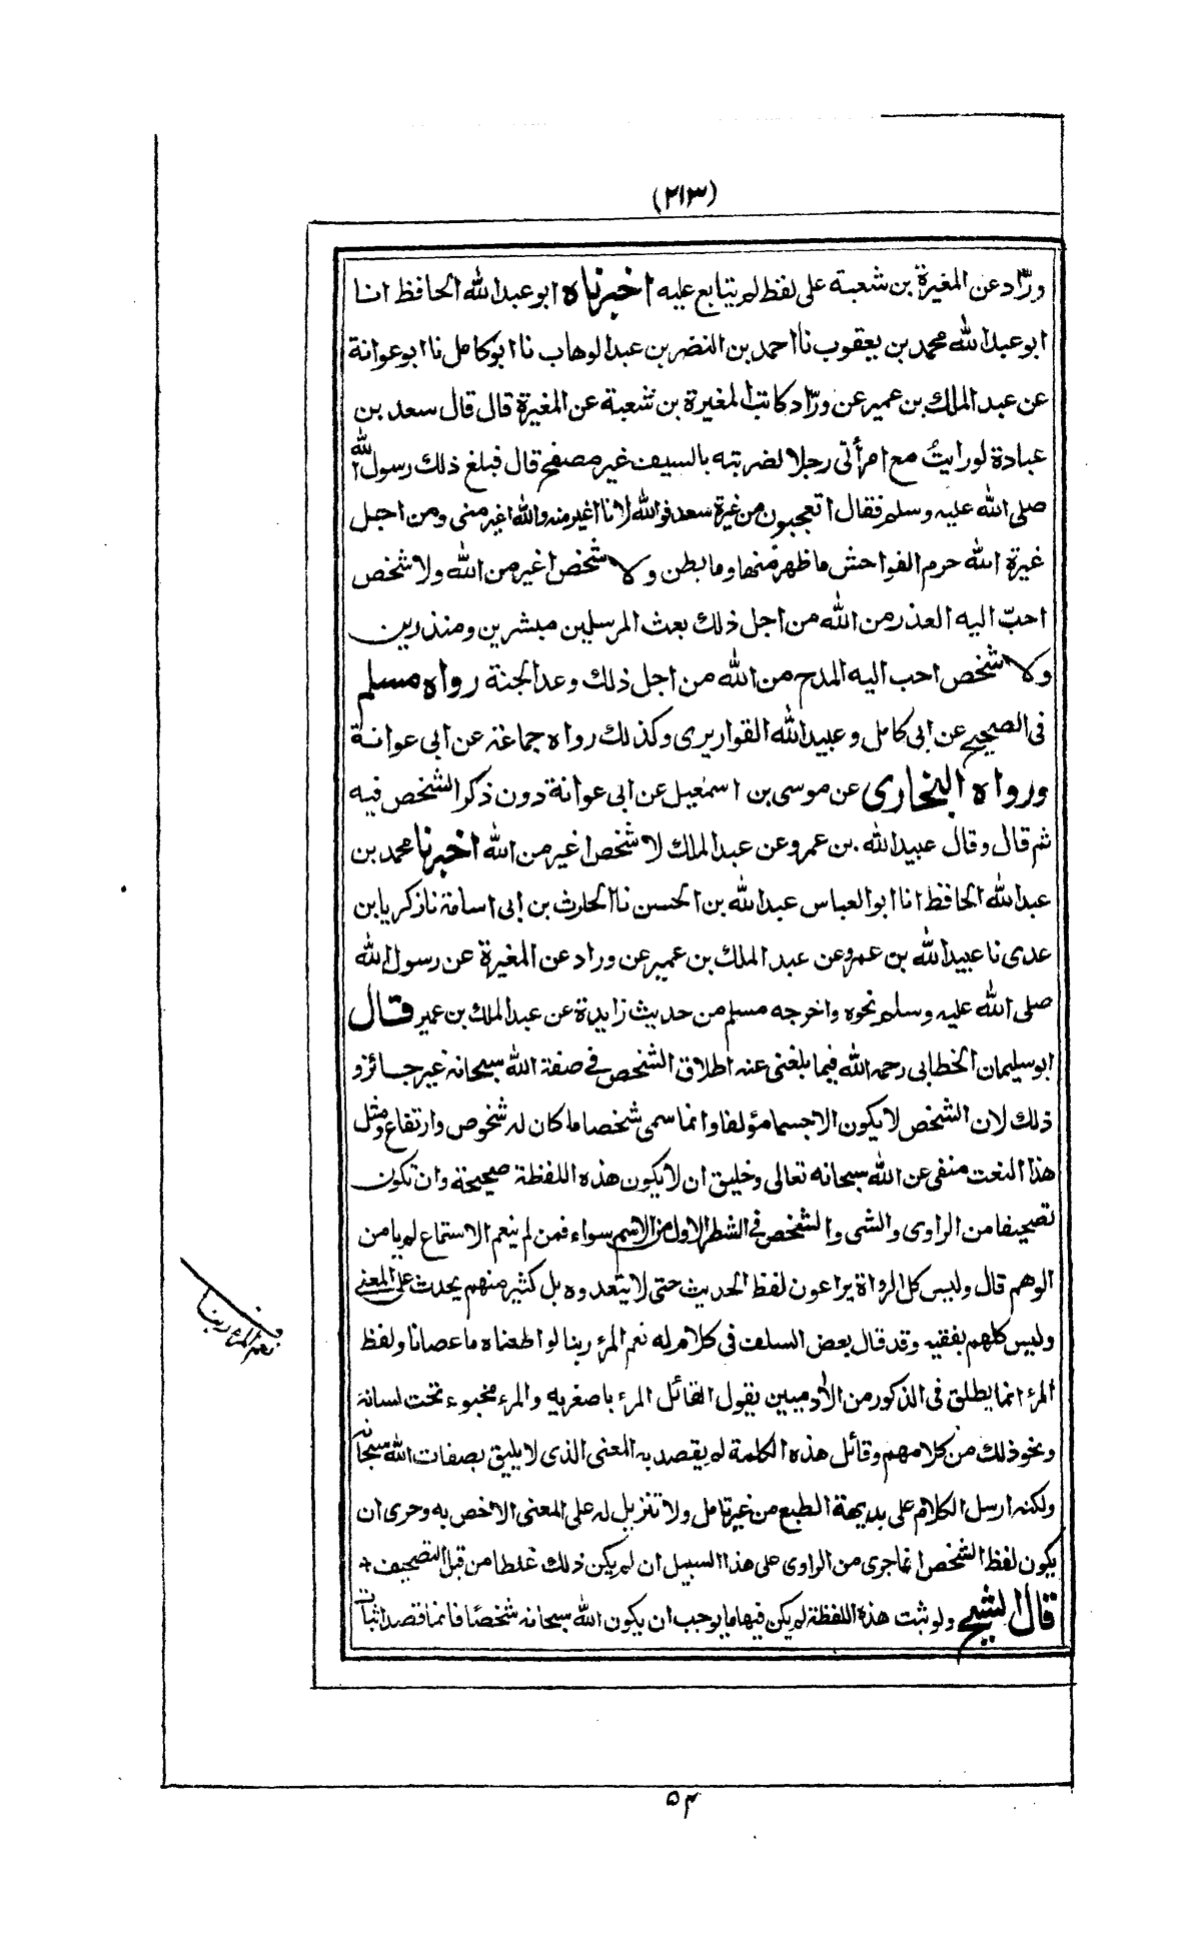 (۲۱۳)
ورّاد عن المغيرة بن شعبة على لفظ لم يتابع عليه اخبرناه ابو عبد الله الحافظ انا
ابو عبد الله محمد بن يعقوب نا احمد بن النضر بن عبد الوهاب نا ابو كامل نا ابو عوانة
عن عبد الملك بن عمير عن ورّاد كاتب المغيرة بن شعبة عن المغيرة قال قال سعد بن
عبادة لو رايتُ مع امرأتى رجلا لضربته بالسيف غير مصفح قال فبلغ ذلك رسول الله
صلى الله عليه وسلم فقال اتعجبون من غيرة سعد فوالله لانا اغير منه والله اغير منى ومن اجل
غيرة الله حرم الفواحش ما ظهر منها وما بطن ولا شخص اغير من الله ولا شخص
احبّ اليه العذر من الله من اجل ذلك بعث المرسلين مبشرين ومنذرين
ولا شخص احب اليه المدح من الله من اجل ذلك وعد الجنة رواه مسلم
فى الصحيح عن ابى كامل وعبيد الله القواريرى وكذلك رواه جماعة عن ابى عوانة
ورواه البخارى عن موسى بن اسمعيل عن ابى عوانة دون ذكر الشخص فيه
ثم قال وقال عبيد الله بن عمرو عن عبد الملك لا شخص اغير من الله اخبرنا محمد بن
عبد الله الحافظ انا ابو العباس عبد الله بن الحسن نا الحارث بن ابى اسامة نا زكريا بن
عدى نا عبيد الله بن عمرو عن عبد الملك بن عمير عن وراد عن المغيرة عن رسول الله
صلى الله عليه وسلم نحوه واخرجه مسلم من حديث زايدة عن عبد الملك بن عمير قال
ابو سليمان الخطابى رحمه الله فيما بلغنى عنه اطلاق الشخص فى صفة الله سبحانه غير جائز و
ذلك لان الشخص لا يكون الا جسما مؤلفا وانما سمى شخصا ما كان له شخوص وارتفاع ومثل
هذا النعت منفى عن الله سبحانه تعالى وخليق ان لا يكون هذه اللفظة صحيحة وان تكون
تصحيفا من الراوى والشى والشخص فى الشطر الاول من الاسم سواء فمن لم ينعم الاستماع لم يا من
الوهم قال وليس كل الرواة يراعون لفظ الحديث حتى لا يتعدوه بل كثير منهم يحدث على المعنى
وليس كلهم بفقيه وقد قال بعض السلف فى كلام له نعم المرء ربنا لو اطعناه ما عصانا ولفظ
المرء انما يطلق فى الذكور من الآدميين يقول القائل المرء باصغريه والمرء مخبوء تحت لسانه
ونحو ذلك من كلامهم وقائل هذه الكلمة لم يقصد به المعنى الذى لا يليق بصفات الله سبحانه
ولكنه ارسل الكلام على بديهة الطبع من غير تامل ولا تنزيل له على المعنى الاخص به وحرى ان
يكون لفظ الشخص انما جرى من الراوى على هذا السبيل ان لم يكن ذلك غلطا من قبل التصحيف +
قال الشيخ ولو ثبت هذه اللفظة لم يكن فيها ما يوجب ان يكون الله سبحانه شخصًا فانما قصد اثبات
نعم المرء ربنا
۵۴